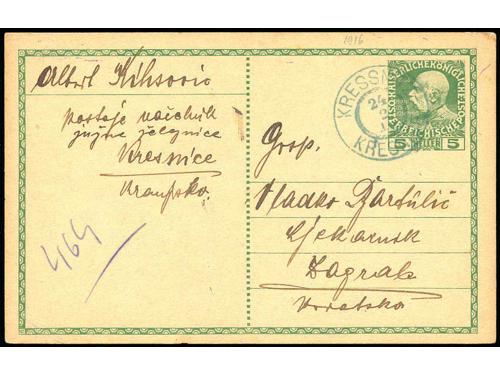 1916
Albert
postaje načelnik
južne željeznice
Kresnice
Kranjsko
464
KRESSN
24
KRES
KAISERLICHE KÖNIGLICHE
ÖSTERREICHISCHE
5 HELLER 5
Gosp.
Vladko Bartulić
Ljekarnik
Zagreb
Hrvatska